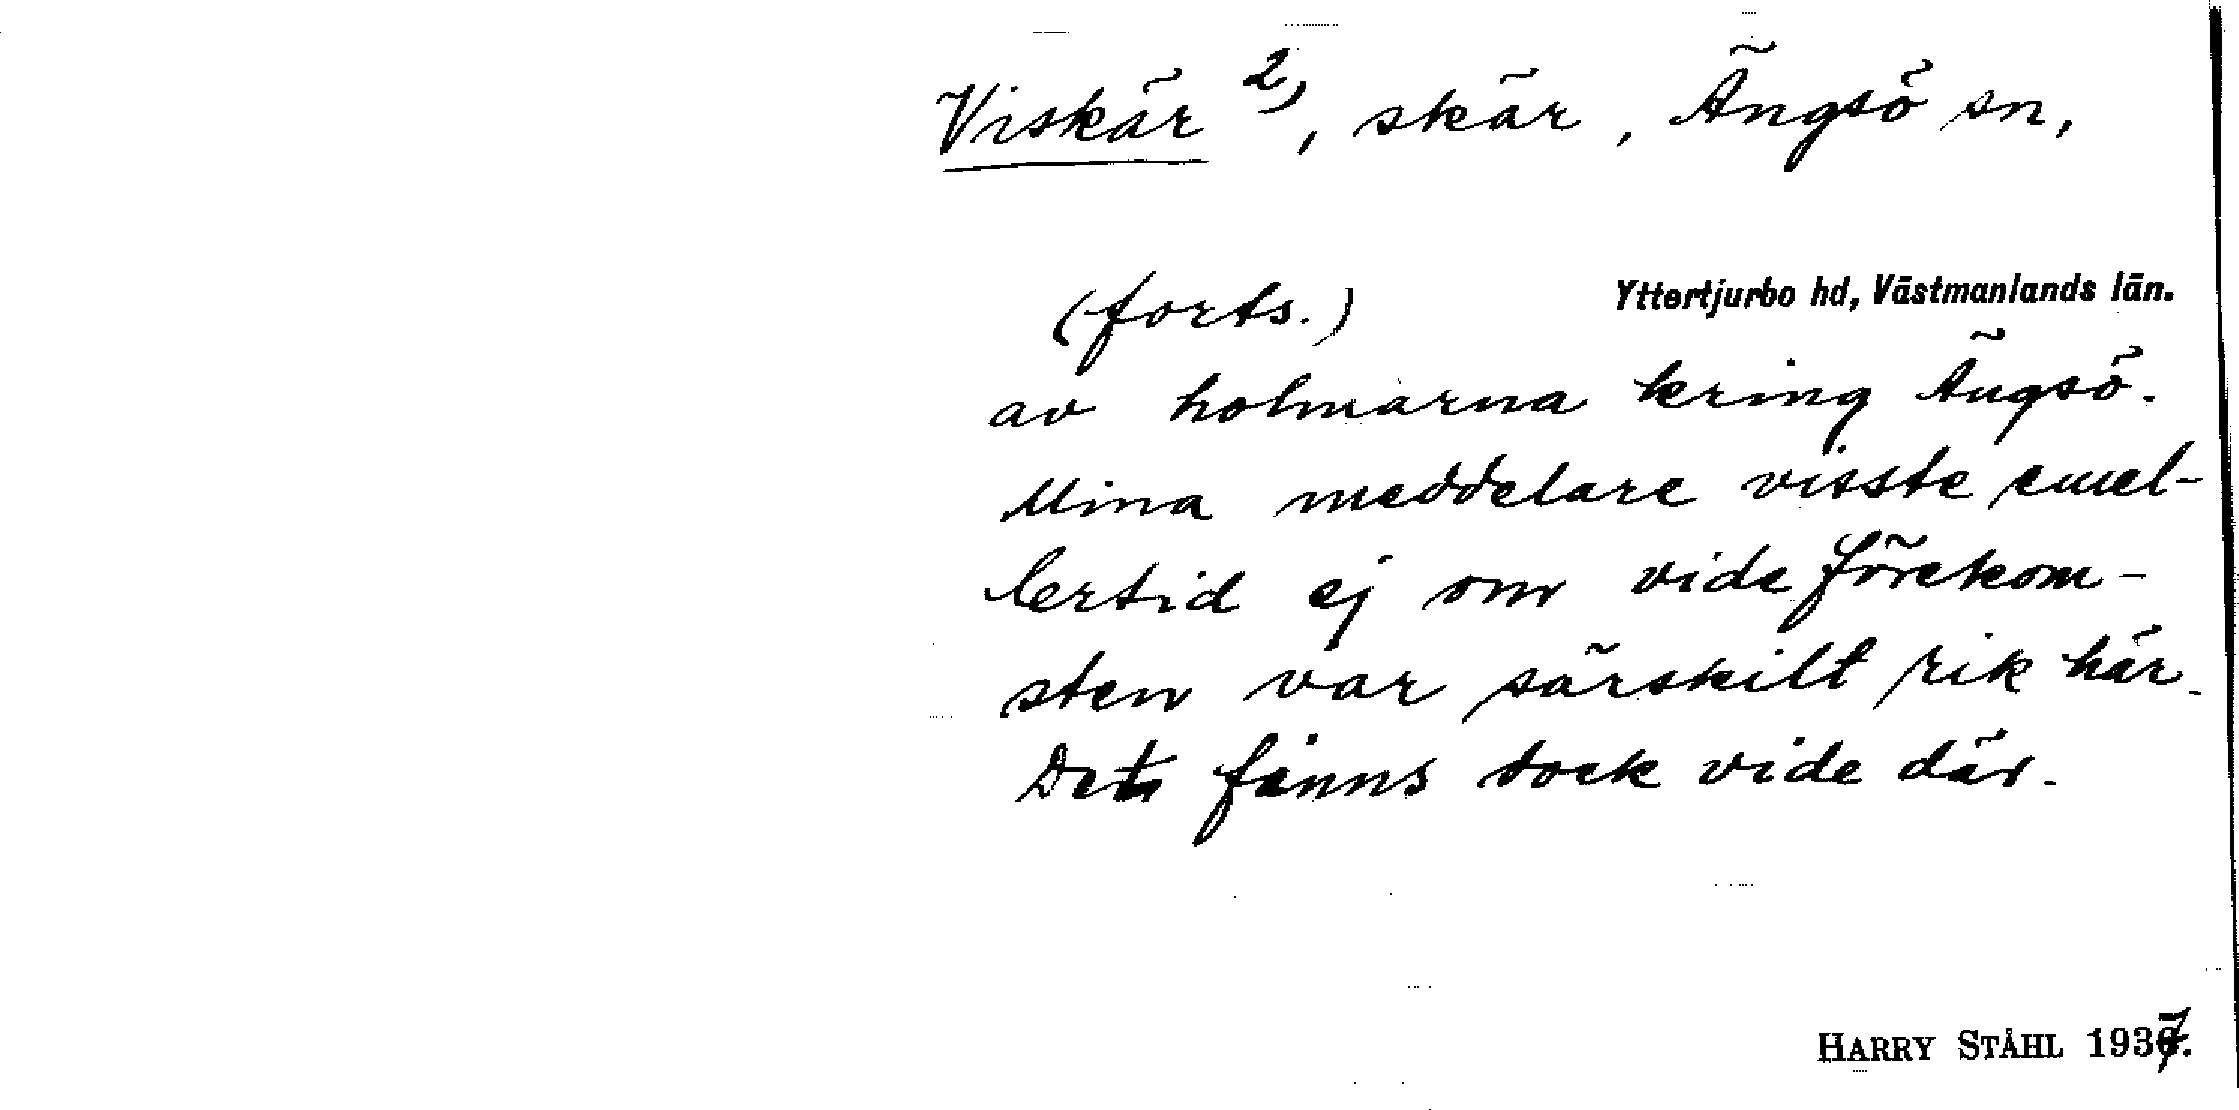 Viskär 2), skär, Ängsö sn,
(forts.) Yttertjurbo hd, Västmanlands län.
av holmarna kring Ängsö.
Mina meddelare visste emel-
lertid ej om videförekom-
sten var särskilt rik här.
Det finns dock vide där.
HARRY STÅHL 1937.